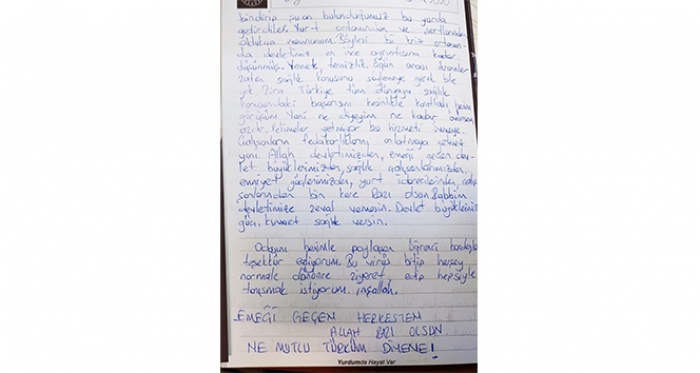 bindirip şu an bulunduğumuz bu yurda
getirdiler. Yurt ortamından ve şartlardan
oldukça memnunum. Böylesi bir kriz ortamın-
da devletimiz en ince ayrıntısına kadar
düşünmüş. Yemek, temizlik, öğün arası ikramlar
zaten sağlık konusunu söylemeye gerek bile
yok. Zira Türkiye tüm dünyaya sağlık
konusundaki başarısını kesinlikle kanıtladı, benim
görüşüm. Yani ne diyeyim ne kadar
azdır. Kelimeler yetmiyor bu hizmeti
Çalışanların fedakarlıklarını anlatmaya yetmez
yani. Allah devletimizden, emeği geçen dev-
let büyüklerimizden, sağlık çalışanlarımızdan,
emniyet güçlerimizden, yurt idarecilerinden, çalış-
anlarından bin kere Razı olsun. Rabbim
devletimize zeval vermesin. Devlet büyüklerimize
güç, kuvvet sağlık versin.
Odasını benimle paylaşan öğrenci kardeşime
teşekkür ediyorum. Bu virüs bitip herşey
normale dönünce ziyaret edip hepsiyle
tanışmak istiyorum. inşallah.
EMEĞİ GEÇEN HERKESTEN
ALLAH RAZI OLSUN.
NE MUTLU TÜRKÜM DİYENE!
Yurdumda Hayat Var